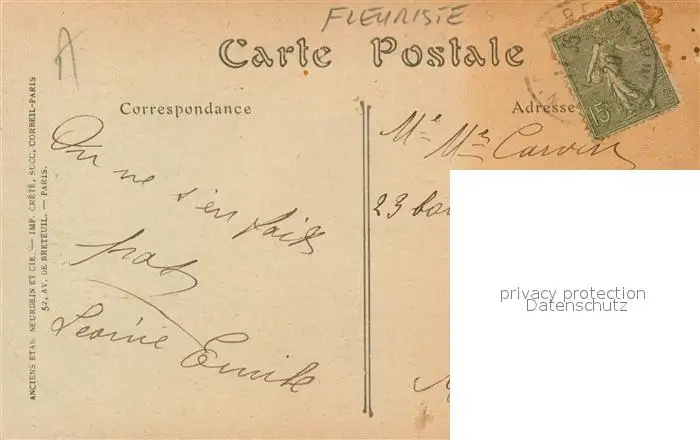 FLEURISTE
A
Carte Postale
15c
Correspondance
Adresse
On ne s'en fait
pas
Leonie Emile
Mr
23
privacy protection
Datenschutz
ANCIENS ETAB. NEURDEIN ET CIE. — IMP. CRÉTÉ, SUCC, CORBEIL-PARIS
52, AV. DE BRETEUIL. — PARIS.